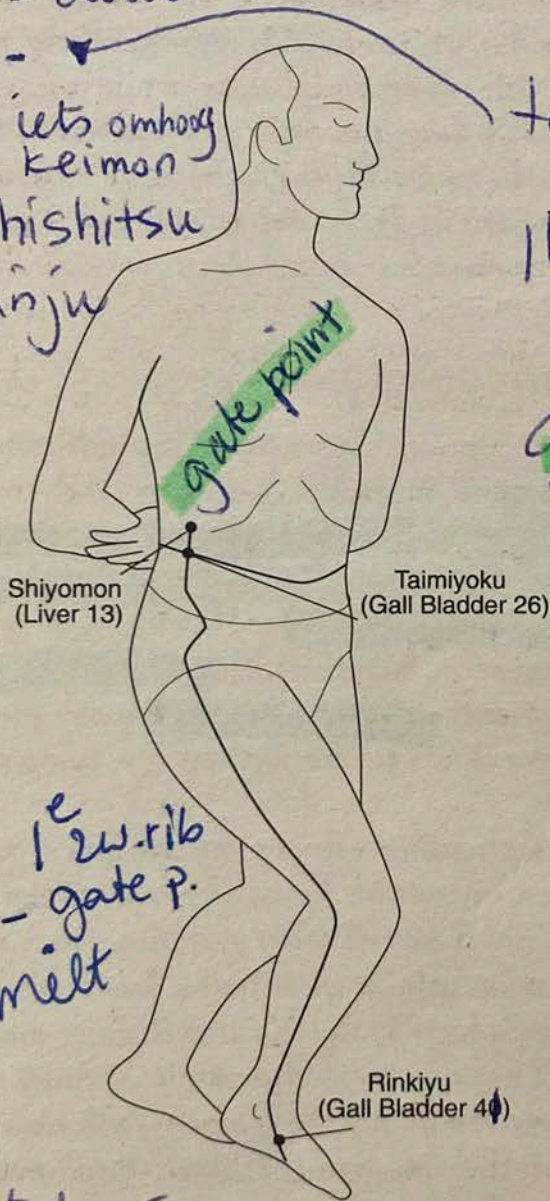 iets omhoog
keimon
hishitsu
inju
gate point
Shiyomon
(Liver 13)
Taimiyoku
(Gall Bladder 26)
1e zw.rib
- gate p.
milt
Rinkiyu
(Gall Bladder 41)